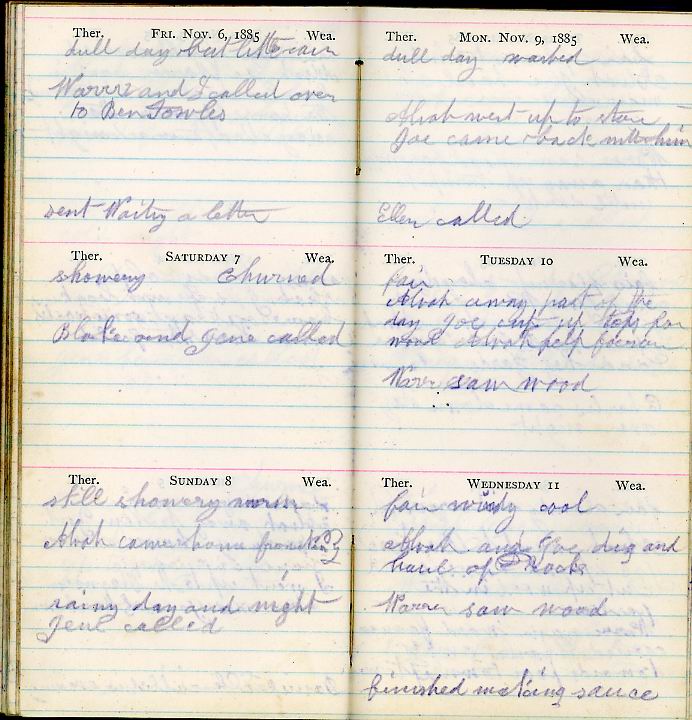 Ther. FRI. NOV. 6, 1885 Wea.
dull day about little rain
and I called over
to Ben Fowles
sent a letter
Ther. SATURDAY 7 Wea.
showery Churned
Blake and Jene called
Ther. SUNDAY 8 Wea.
still showery warm
Alvah came home from
rainy day and night
Jene called
Ther. MON. NOV. 9, 1885 Wea.
dull day washed
Alvah went up to store
Joe came back with him
Ellen called
Ther. TUESDAY 10 Wea.
fair
Alvah away part of the
day Joe cut up tops for
wood Alvah help
saw wood
Ther. WEDNESDAY 11 Wea.
fair windy cool
Alvah and Joe dig and
haul of Rocks
saw wood
finished making sauce